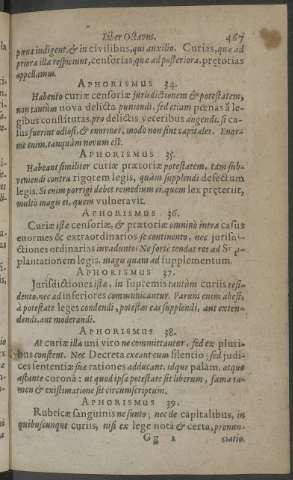 Liber Octavus. 467
pœna indigent, & in civilibus, qui auxilio. Curias, quæ ad
priora illa respiciunt, censorias; quæ ad posteriora, prætorias
appellamus.
APHORISMUS 34.
Habento curiæ censoriæ jurisdictionem & potestatem,
non tantùm nova delicta puniendi, sed etiam pœnas à le-
gibus constitutas, pro delictis veteribus augendi, si ca-
sus fuerint odiosi, & enormes, modò non sint capitales. Enor-
me enim, tanquam novum est.
APHORISMUS 35.
Habeant similiter curiæ prætoriæ potestatem, tam sub-
veniendi contra rigorem legis, quàm supplendi defectum
legis. Si enim porrigi debet remedium ei, quem lex præteriit,
multò magis ei, quem vulneravit.
APHORISMUS 36.
Curiæ istæ censoriæ, & prætoriæ omninò intra casus
enormes & extraordinarios se continento, nec jurisdi-
ctiones ordinarias invadunto: Ne fortè tendat res ad Sup-
plantationem legis, magis quàm ad supplementum.
APHORISMUS 37.
Jurisdictiones istæ, in supremis tantùm curiis resi-
dento, nec ad inferiores communicantur. Parùm enim abest,
à potestate leges condendi, potestas eas supplendi, aut exten-
dendi, aut moderandi.
APHORISMUS 38.
At curiæ illæ uni viro ne committantur, sed ex pluri-
bus constent. Nec Decreta exeant cum silentio; sed judi-
ces sententiæ suæ rationes adducant, idque palàm, atque
adstante coronâ: ut quod ipsa potestate sit liberum, fama ta-
men & existimatione sit circumscriptum.
APHORISMUS 39.
Rubricæ sanguinis ne sunto; nec de capitalibus, in
quibuscunque curiis, nisi ex lege notâ & certa, pronun-
Gg 2 tiatio.